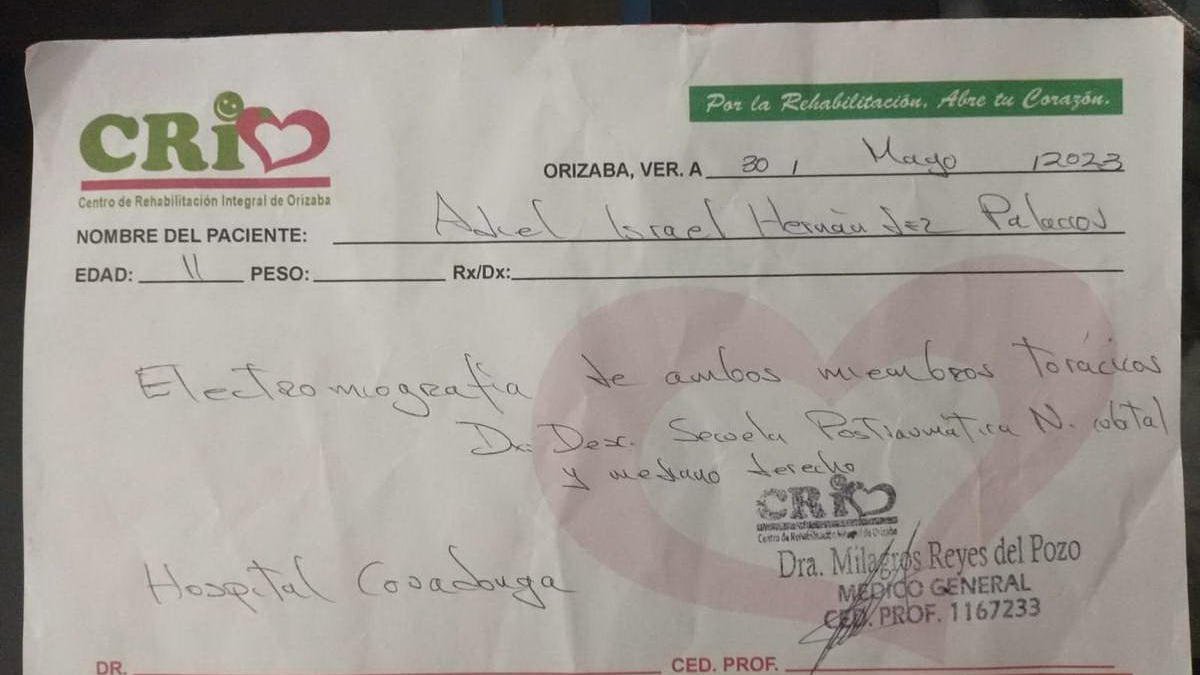 CRi
Centro de Rehabilitación Integral de Orizaba
Por la Rehabilitación, Abre tu Corazón.
ORIZABA, VER. A 30 / Mayo /2023
NOMBRE DEL PACIENTE: Israel Hernández Palacios
EDAD: 11 PESO: Rx/Dx:
Electromiografía de ambos miembros torácicos
Dx: Desc. Secuela Postraumática N. cubital
y mediano derecho
CRi
Centro de Rehabilitación Integral de Orizaba
Dra. Milagros Reyes del Pozo
MEDICO GENERAL
CED. PROF. 1167233
Hospital Covadonga
DR. CED. PROF.